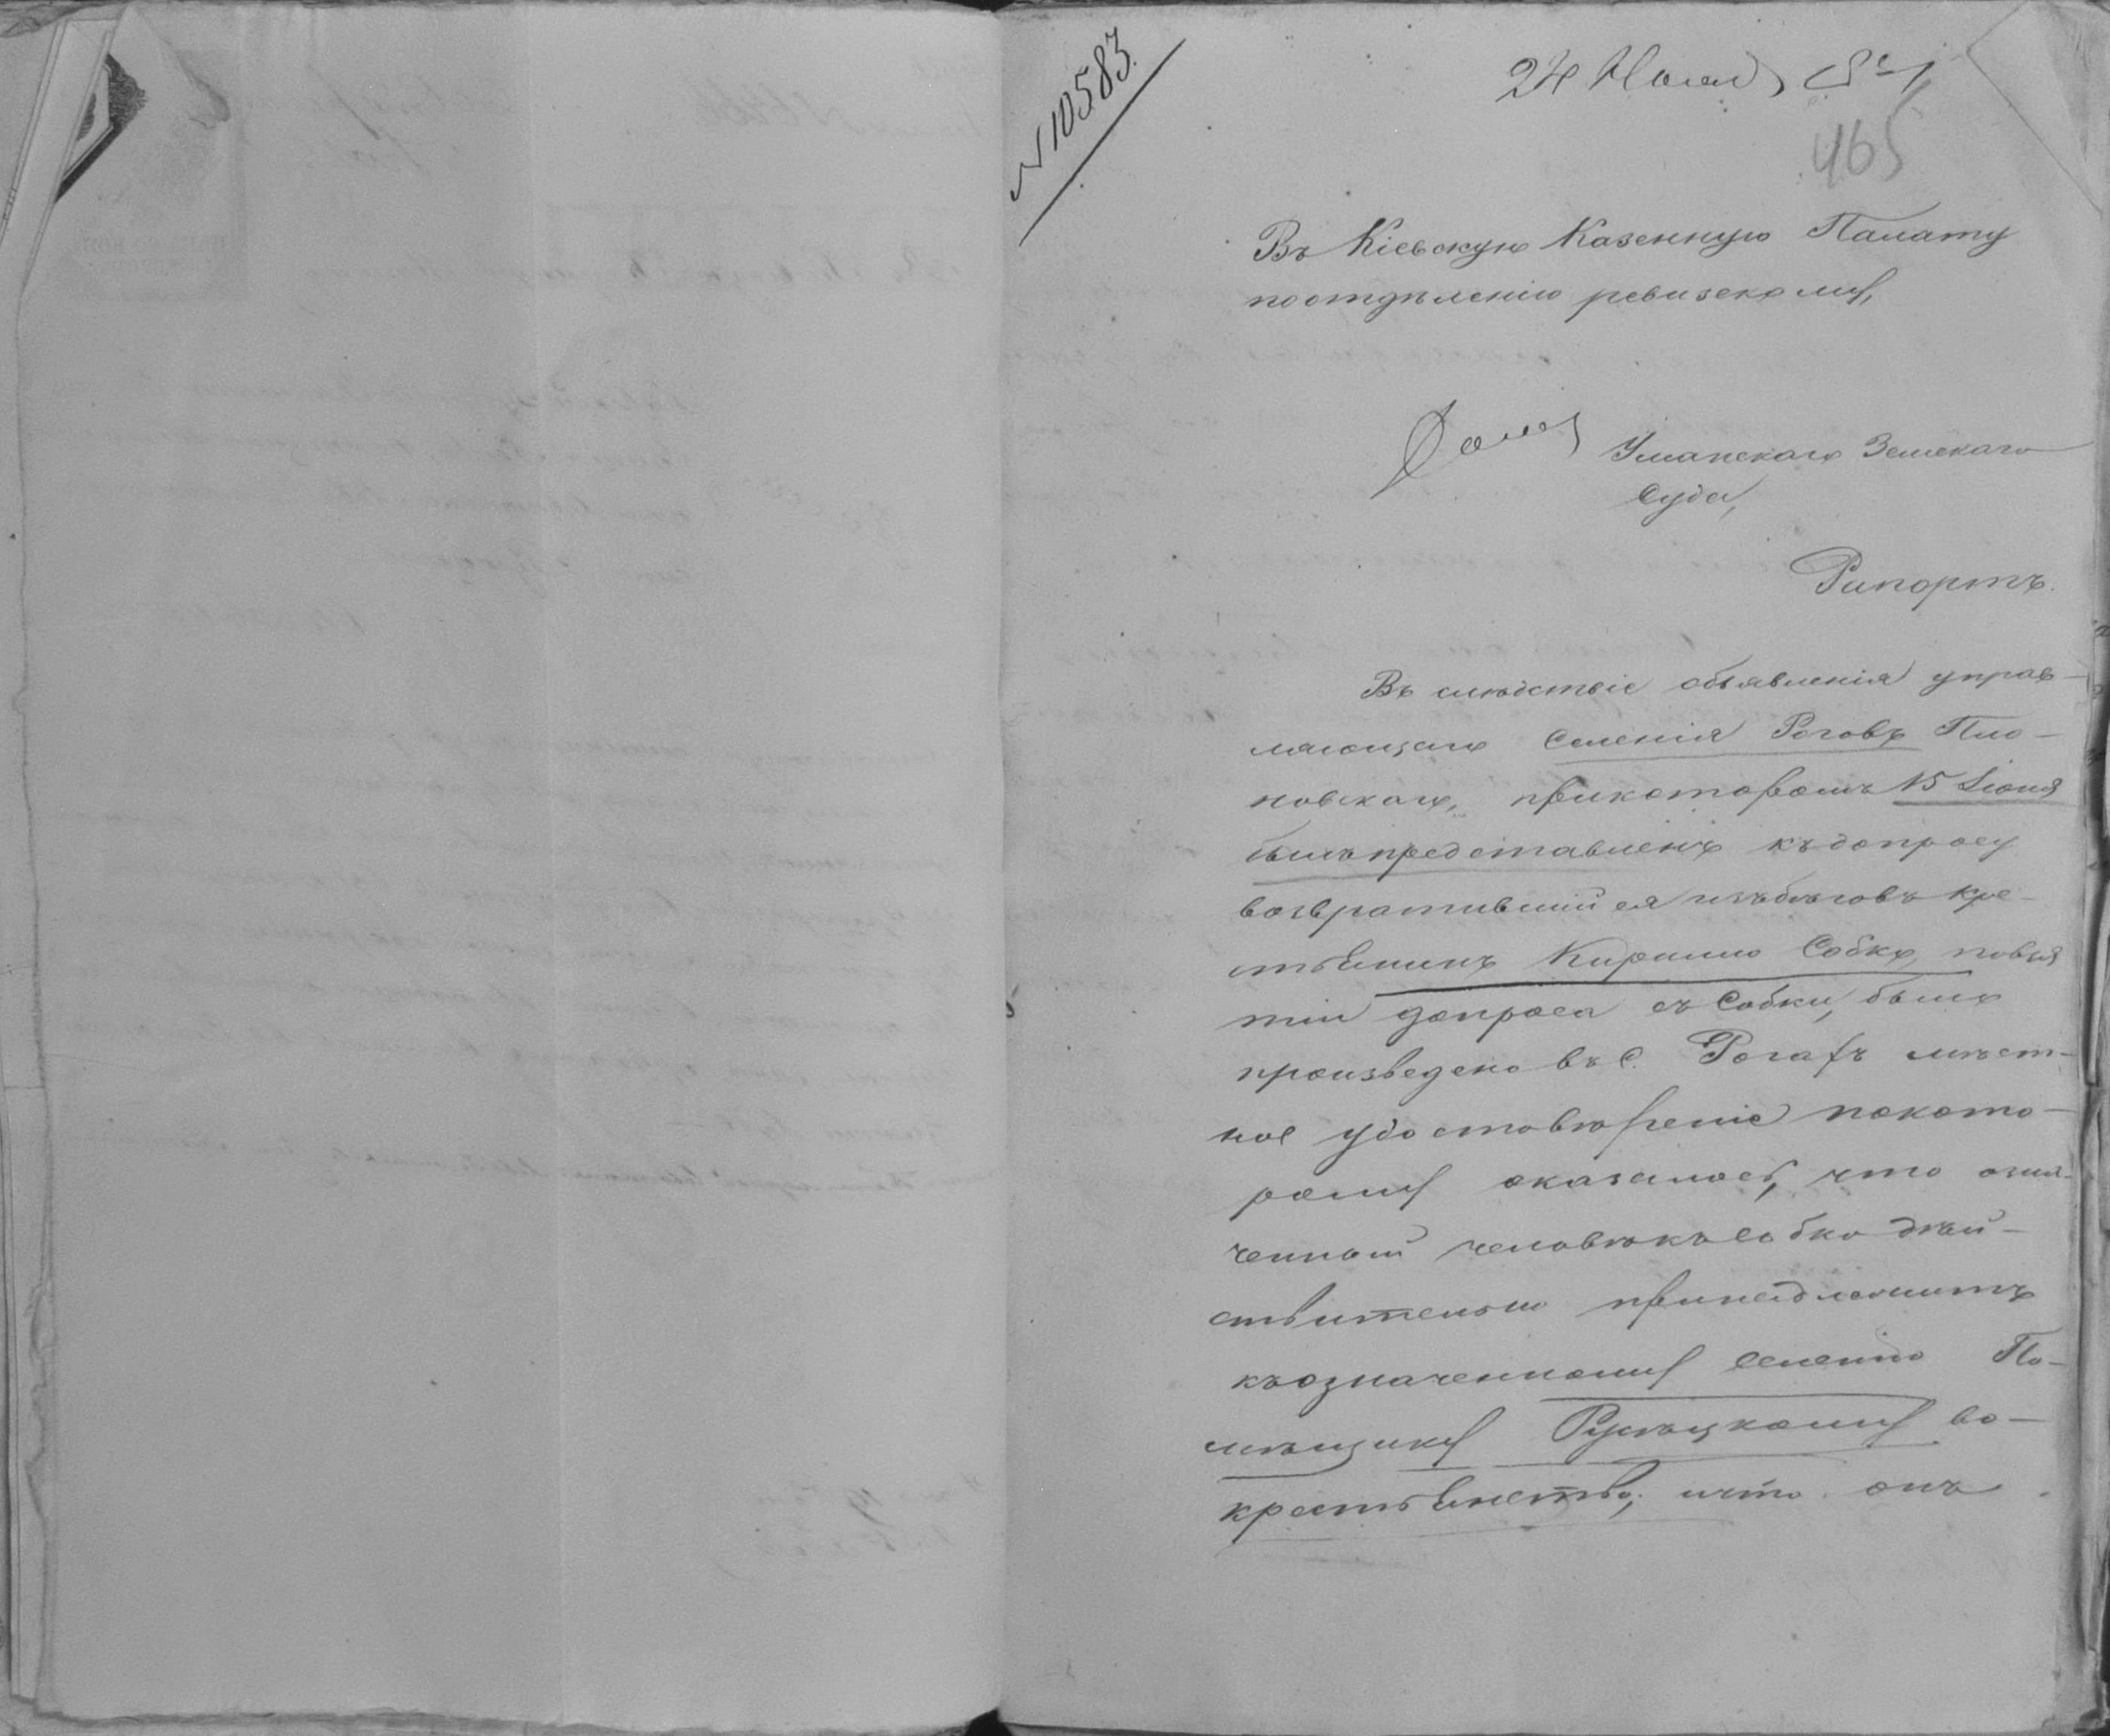 N 10583.
24
465
Въ Кіевскую Казенную Палату
по отдѣленію ревизскому,
Уманскаго Земскаго
Суда,
Рапортъ.
Въ слѣдствіе объявленія управ-
ляющаго Селенія Роговъ
новскаго, при которомъ 15 Iюня
былъ представленъ къ допросу
возвратившийся изъ бѣговъ кре-
стьянинъ Кирилло Собко, по взя
тіи допроса съ Собки, было
произведено въ С. Рогахъ мѣст-
ное удостовѣреніе по кото-
рому оказалось, что озна-
ченный человѣкъ Собко дѣй-
ствительно принадлежитъ
къ означенному селенію По-
мѣщику во-
крестьянство, и что онъ